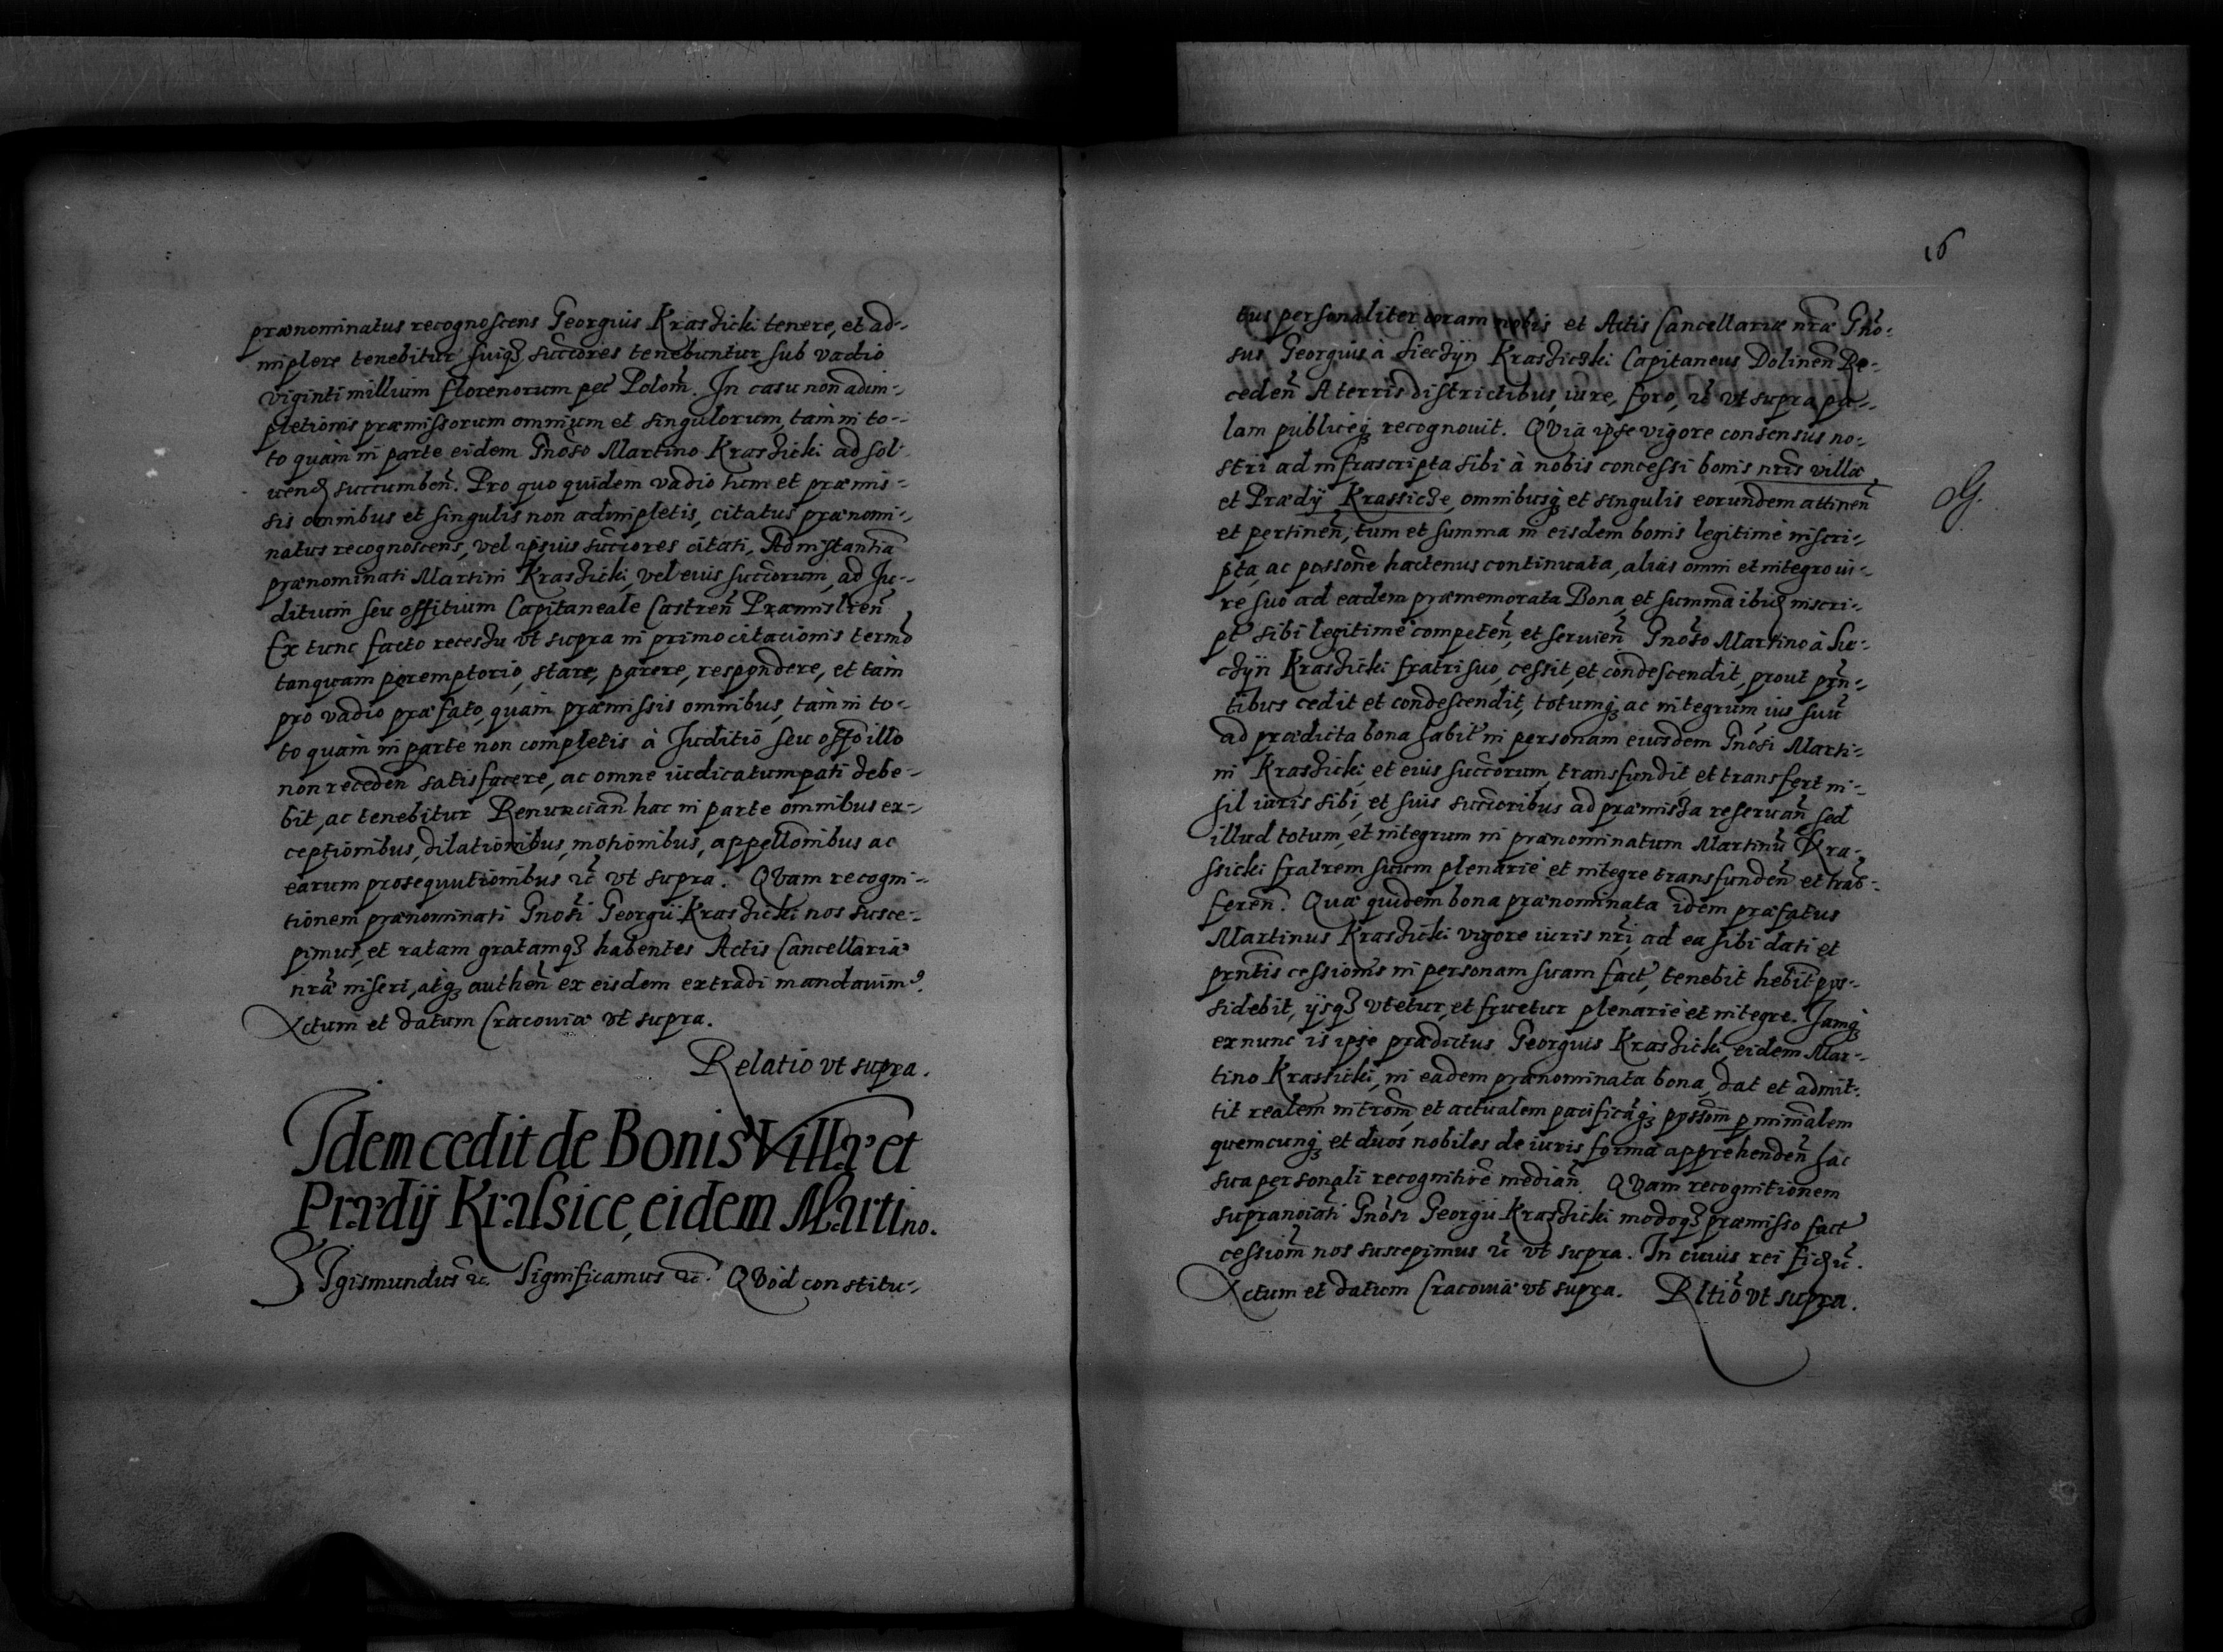 prænominatus recognoscens Georgius Krasiicki tenere, et ad-
implere tenebitur suiq3 succores tenebuntur, sub vadio
viginti millium florenorum pec Polon̄. In casu non adim-
pletionis præmissorum omnium et singulorum, tam in to-
to quàm in parte eidem Gnōso Martino Krasiicki ad sol-
uend succumben̄. Pro quo quidem vadio hmōi et præmis-
sis omnibus et singulis non adimpletis, citatus prænomi-
natus recognoscens, vel ipsius succores citati, Ad instantia
prænominati Martini Krasiicki, vel eius succorum, ad Ju-
ditium seu offitium Capitaneale Castren̄ Præmislien̄
Ex tunc facto recessu vt supra in primo citacionis termō
tanquam peremptorio, stare, parere, respondere, et tàm
pro vadio præfato, quàm præmissis omnibus, tàm in to-
to quàm in parte non completis à Juditio seu offō illo
non receden̄ satisfacere, ac omne iudicatum pati debe-
bit, ac tenebitur Renuncian̄ hac in parte omnibus ex-
ceptionibus, dilationibus, motionibus, appellōnibus ac
earum prosequutionibus ꝛc̄ vt supra. QVam recogni-
tionem prænominati Gnōsi Georgii Krasiicki nos susce-
pimus, et ratam gratamq3 habentes Actis Cancellariæ
nræ inseri, atq3 authen̄ ex eisdem extradi mandauimꝰ.
Actum et datum Cracouiæ vt supra.
Relatio vt supra.
Idem cedit de Bonis Villæ et
Prædij Krasice, eidem Martino.
SIgismundus ꝛc̄. Significamus ꝛc̄. QVod constitu-
16
tus personaliter coram nobis et Actis Cancellariæ nræ Gnō-
sus Georgius à Siecyn Krasiicki Capitaneus Dolinen̄ Re-
ceden̄ A terris districtibus, iure, foro, ꝛc̄ vt supra pa-
lam publiceq3 recognouit. QVia ipse vigore consensus no-
stri ad infrascripta sibi à nobis concessi bonis nris villæ,
et Prædij Krassicze, omnibusq3 et singulis eorundem attinen̄
et pertinen̄, tum et summa in eisdem bonis legitimè inscri-
pta, ac possone hactenus continuata, aliàs omni et integro iu-
re suo ad eadem præmemorata Bona, et summā ibid inscri-
pt sibi legitimè competen̄ et seruien̄ Gnōso Martino à Sie-
cyn Krasiicki fratri suo, cessit, et condescendit, prout prn̄-
tibus cedit et condescendit, totumq3 ac integrum ius suū
ad prædicta bona habit in personam eiusdem Gnōsi Marti-
ni Krasiicki, et eius succorum, transfundit et transfert ni-
hil iuris sibi, et suis succoribus ad præmissa reseruan̄ sed
illud totum, et integrum in prænominatum Martinū Kra-
ssicki fratrem suum plenariè et integre transfunden̄ et trās-
feren̄. Quæ quidem bona prænominata idem præfatus
Martinus Krasiicki vigore iuris nri, ad ea sibi dati et
prntis cessionis in personam suam fact, tenebit hebit pos-
sidebit, ijsq3 vtetur, et fruetur plenariè et integre. Jamq3
ex nunc is ipse prædictus Georgius Krasiicki, eidem Mar-
tino Krassicki, in eadem prænominata bona, dat et admit-
tit realem intrōm, et actualem pacificāq3 possōm p minralem
quemcunq3 et duos nobiles de iuris forma apprehenden̄ hac
sua personali recognitiōe median̄. QVam recognitionem
supranoiāti Gnōsi Georgii Krasiicki modoq3 præmisso fact
cessiōm nos suscepimus ꝛc̄ vt supra. In cuius rei fid ꝛc̄.
Actum et datum Cracouiæ vt supra. Rltiō vt supra.